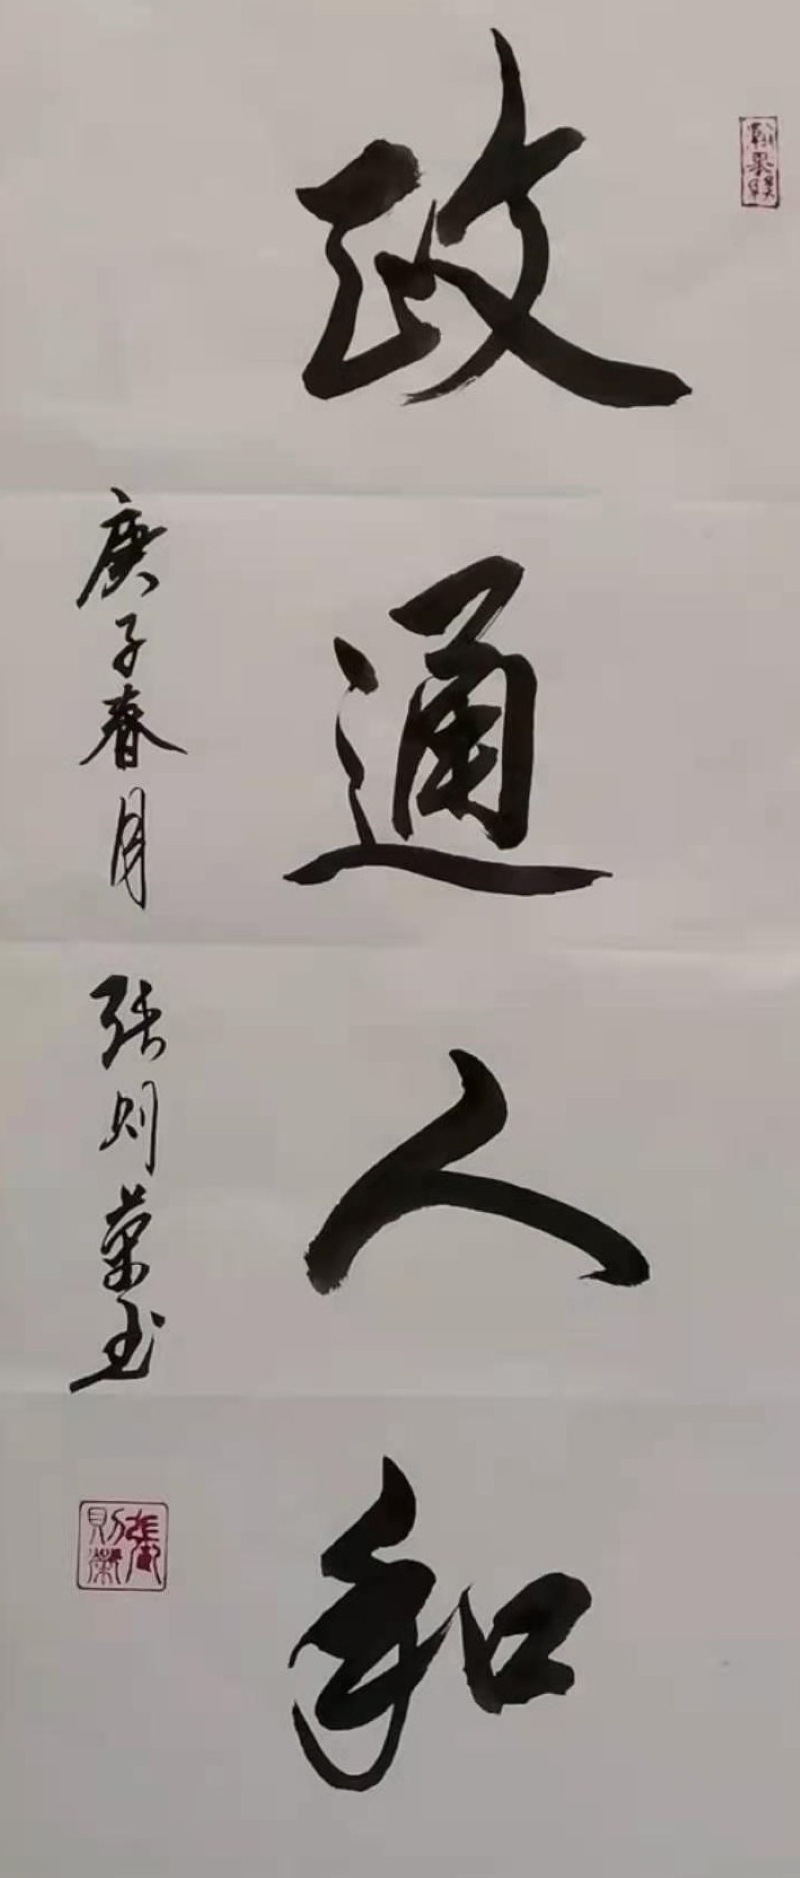 政通人和
庚子春月 张则荣书
張則榮